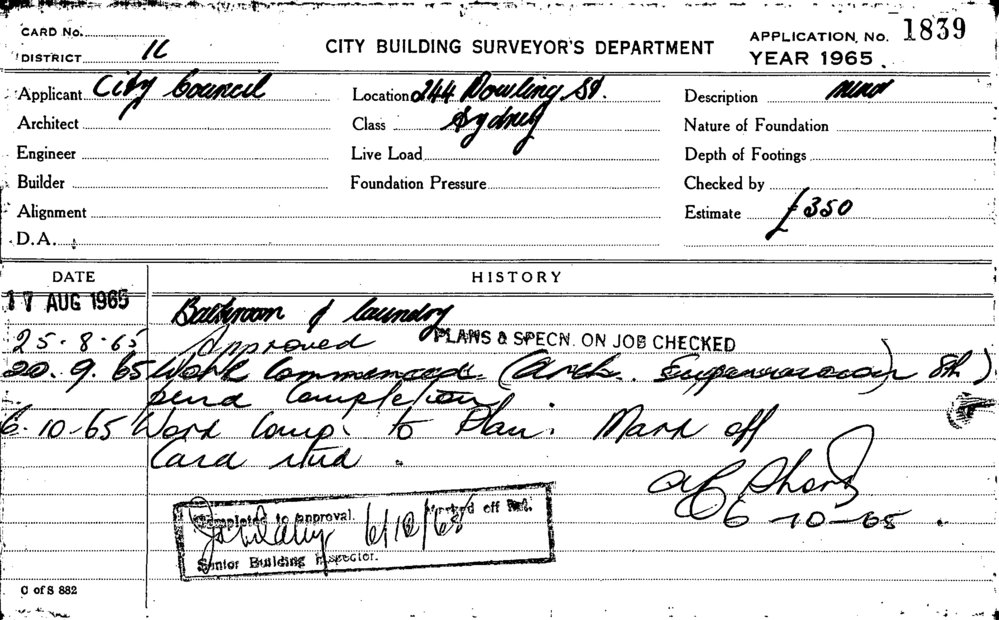 CARD No.
DISTRICT
CITY BUILDING SURVEYOR'S DEPARTMENT
APPLICATION, No. 1839
YEAR 1965.
Applicant City Council
Location 244 Dowling St.
Description
Architect
Class Sydney
Nature of Foundation
Engineer
Live Load
Depth of Footings
Builder
Foundation Pressure
Checked by
Alignment
Estimate £350
D.A.
DATE
HISTORY
17 AUG 1965 Bathroom & laundry
25.8.65 Approved PLANS & SPECN. ON JOB CHECKED
20.9.65 Work Commenced (Arch. Supervision 8h)
pend completion
6.10-65 Work Comp. to Plan. Mark off
Card
6-10-65.
Completed to approval. Marked off
6/10/65
Senior Building Inspector.
C of S 882